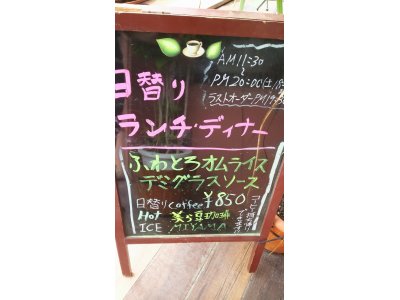 AM11:30
PM20:00(土
ラストオーダーPM19:30
日替り
ランチ・ディナー
ふわとろオムライス
デミグラスソース
日替りcoffee ¥850
Hot 美ら豆珈琲
ICE MIYAMA